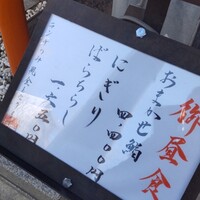 御昼食
おまかせ鮨
にぎり
四、四〇〇円
ばらちらし
一、六五〇円